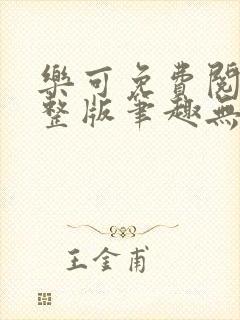 樂可免費閱
整版筆趣無
王金甫